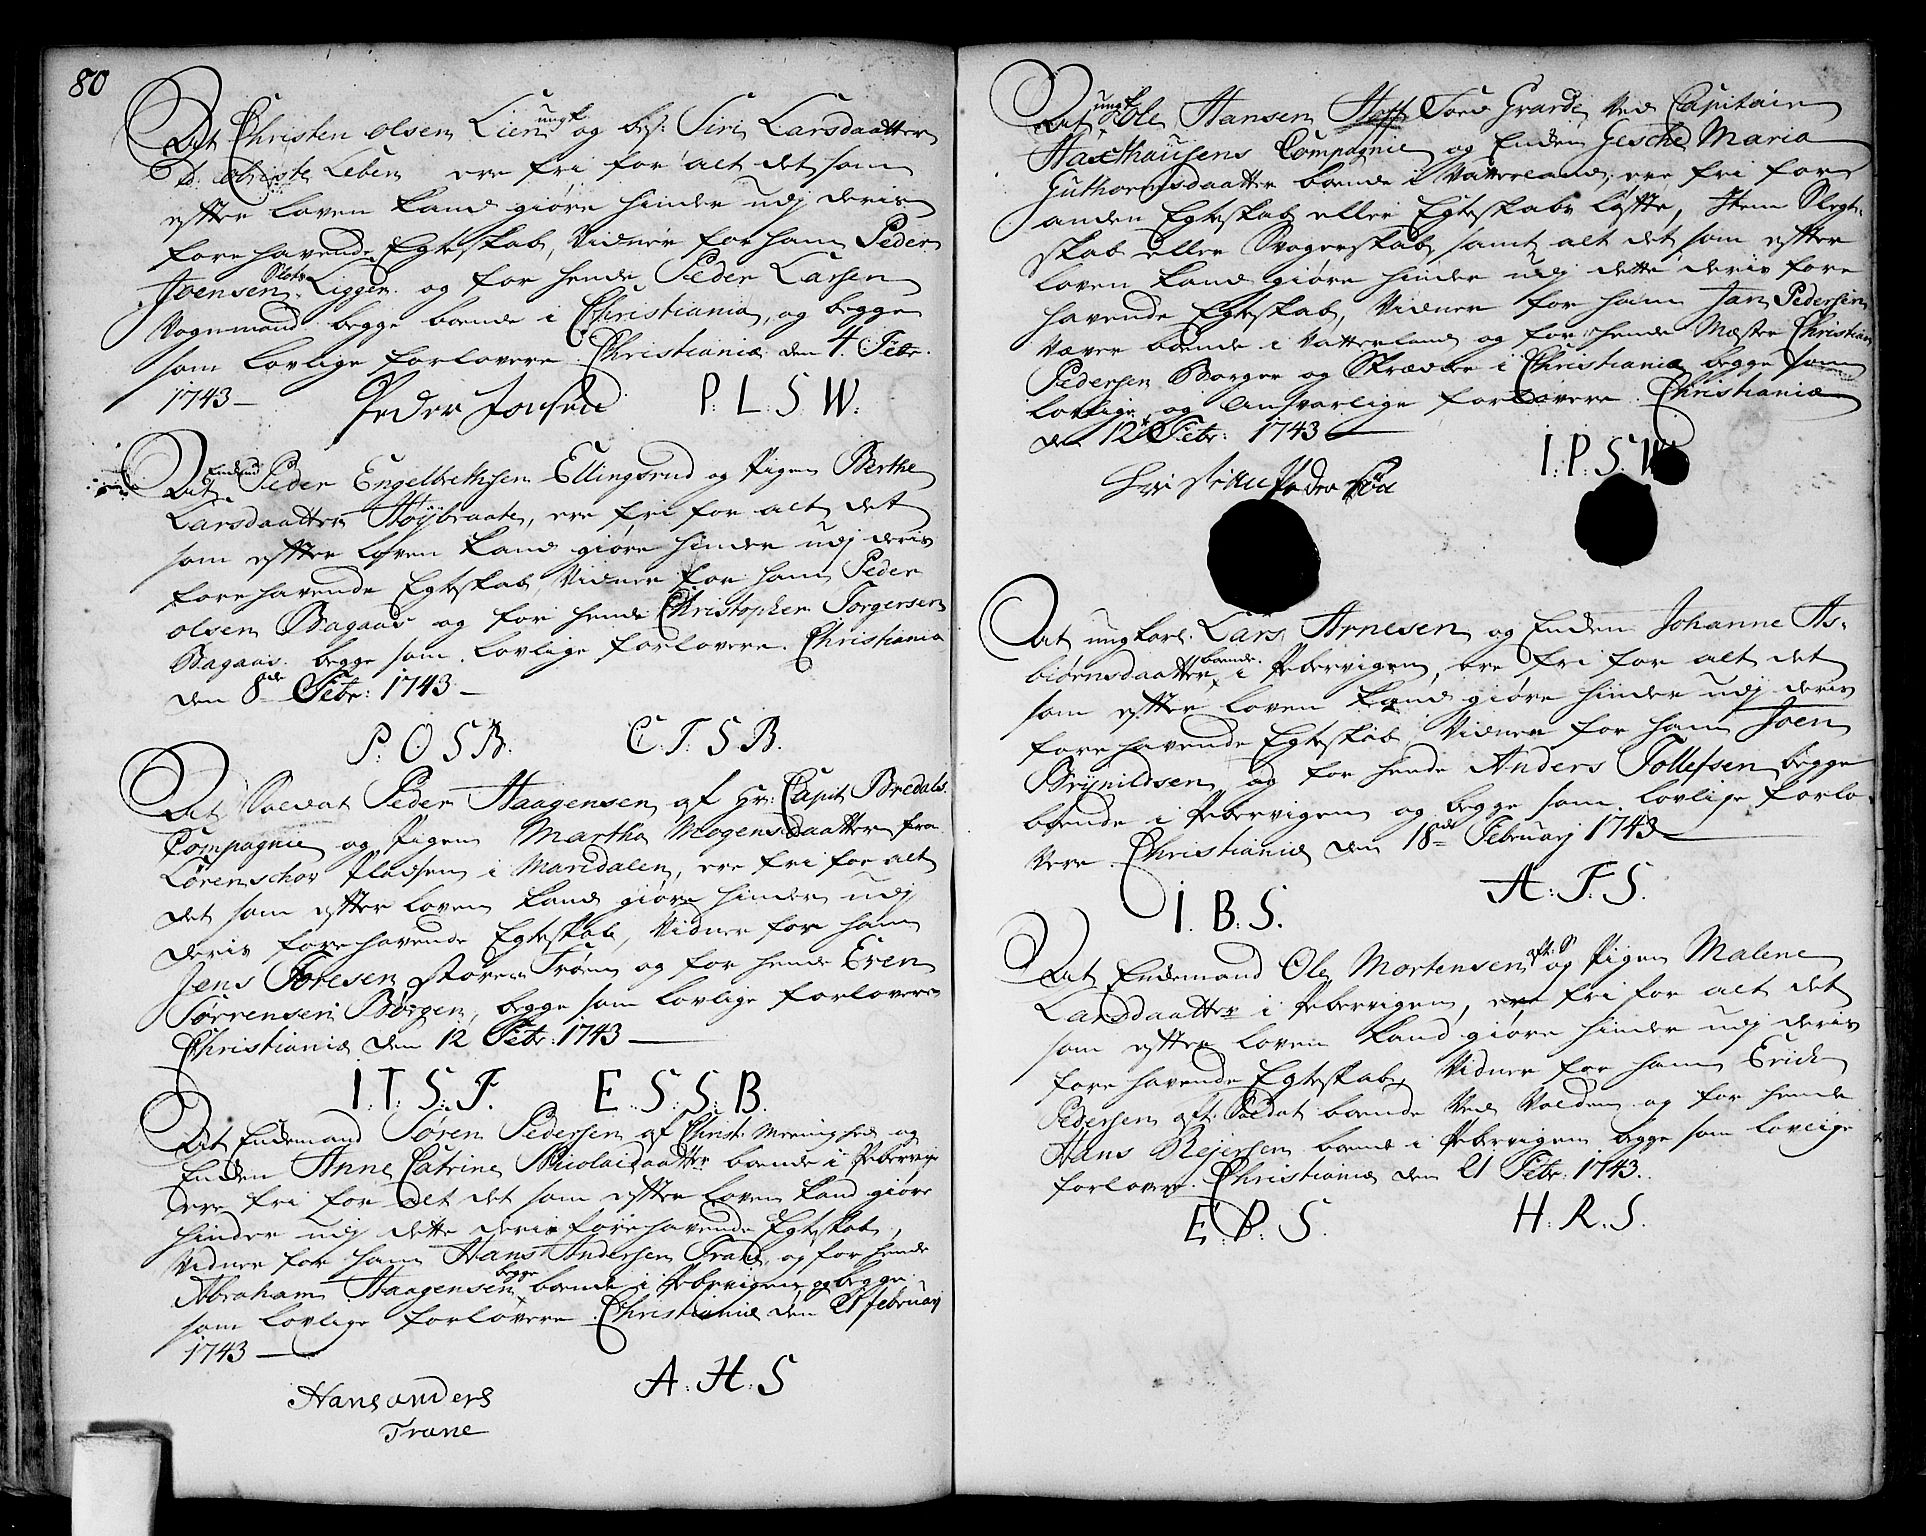 80
At Christen olsen Lien ungk og bef: Siri Larsdaatter
ere fri for alt det som
efter loven kand giøre hinder udj deris
forehavende Egteskab, Vidner for ham Peder
Joensen Slots Ligger og for hende Peder Larsen
Vognmand begge boende i Christiania, og begge
som lovlige forlovere. Christiania den 4. Febr.
1743 —
Peder Jonsen P: L: S: W:
At Enkemd Peder Engelbrethsen Ellingsrud og Pigen Berthe
Larsdaatter Høybraate, ere fri for alt det
som efter loven kand giøre hinder udj deris
forehavende Egteskab, Vidner for ham Peder
olsen Bagaas og for hende Christopher Torgersen
Bagaas. begge som lovlige forlovere. Christiania
den 8de Febr: 1743 —
P: O S B. C. T: S B.
At Soldat Peder Haagensen af Hr: Capit Bredals
Compagnie og Pigen Martha Mogensdaatter fra
Lørenschov Pladsen i Maridalen, ere fri for alt
det som efter loven kand giøre hinder udj
deris forehavende Egteskab, Vidner for ham
Jens Toresen store Trøen og for hende Even
Sørrensen Børgen, begge som lovlige forlovere
Christiania den 12 Febr: 1743 —
I: T: S: T. E. S: S: B.
At Enkemand Søren Pedersen af Christ: Meenighed og
Enken Anne Catrine Nicolaidaatter boende i Pebervigen
ere fri for alt det som efter loven kand giøre
hinder udj dette deris forehavende Egteskab,
Vidner for ham Hans Andersen Trane, og for hende
Abraham Haagensen begge boende i Pebervigen og begge
som lovlige forlovere. Christiania den 21 februarj
1743 —
Hans anders A: H: S
Trane
At ungk Ole Hansen Hoff Toed Grarde Ved Capitain
Haxthausens Compagnie og Enken Gesche Maria
Guthormsdaatter boende i Vatterland, ere fri for
anden Egteskab eller Egteskabs løfte, Item Slegt-
skab eller Svogerskab samt alt det som efter
loven kand giøre hinder udj dette deris fore
havende Egteskab, Vidner for ham Jan Pedersen
Væver boende i Vatterland og for hende Mæster Christian
Pedersen Borger og Skræder i Christiania begge som
lovlige og Ansvarlige forlovere. Christiania
den 12te Febr: 1743 —
I: P: S: W
At ungkarl Lars Arnesen og Enken Johanne As-
biørnsdaatter boende i Pebervigen, ere fri for alt det
som efter loven kand giøre hinder udj deris
forehavende Egteskab, Vidner for ham Joen
Brynildsen og for hende Anders Tollefsen begge
boende i Pebervigen og begge som lovlige forlo-
vere. Christiania den 18de Februarj 1743 —
I. B: S. A: T: S.
At Enkemand Ole Mortensen aft: S og Pigen Malene
Larsdaatter i Pebervigen, ere fri for alt det
som efter loven kand giøre hinder udj deris
forehavende Egteskab, Vidner for ham Erich
Pedersen aft: Soldat boende Ved Volden og for hende
Hans Rejersen boende i Pebervigen begge som lovlige
forlovere. Christiania den 21 Febr: 1743.
E: P: S. H: R: S.